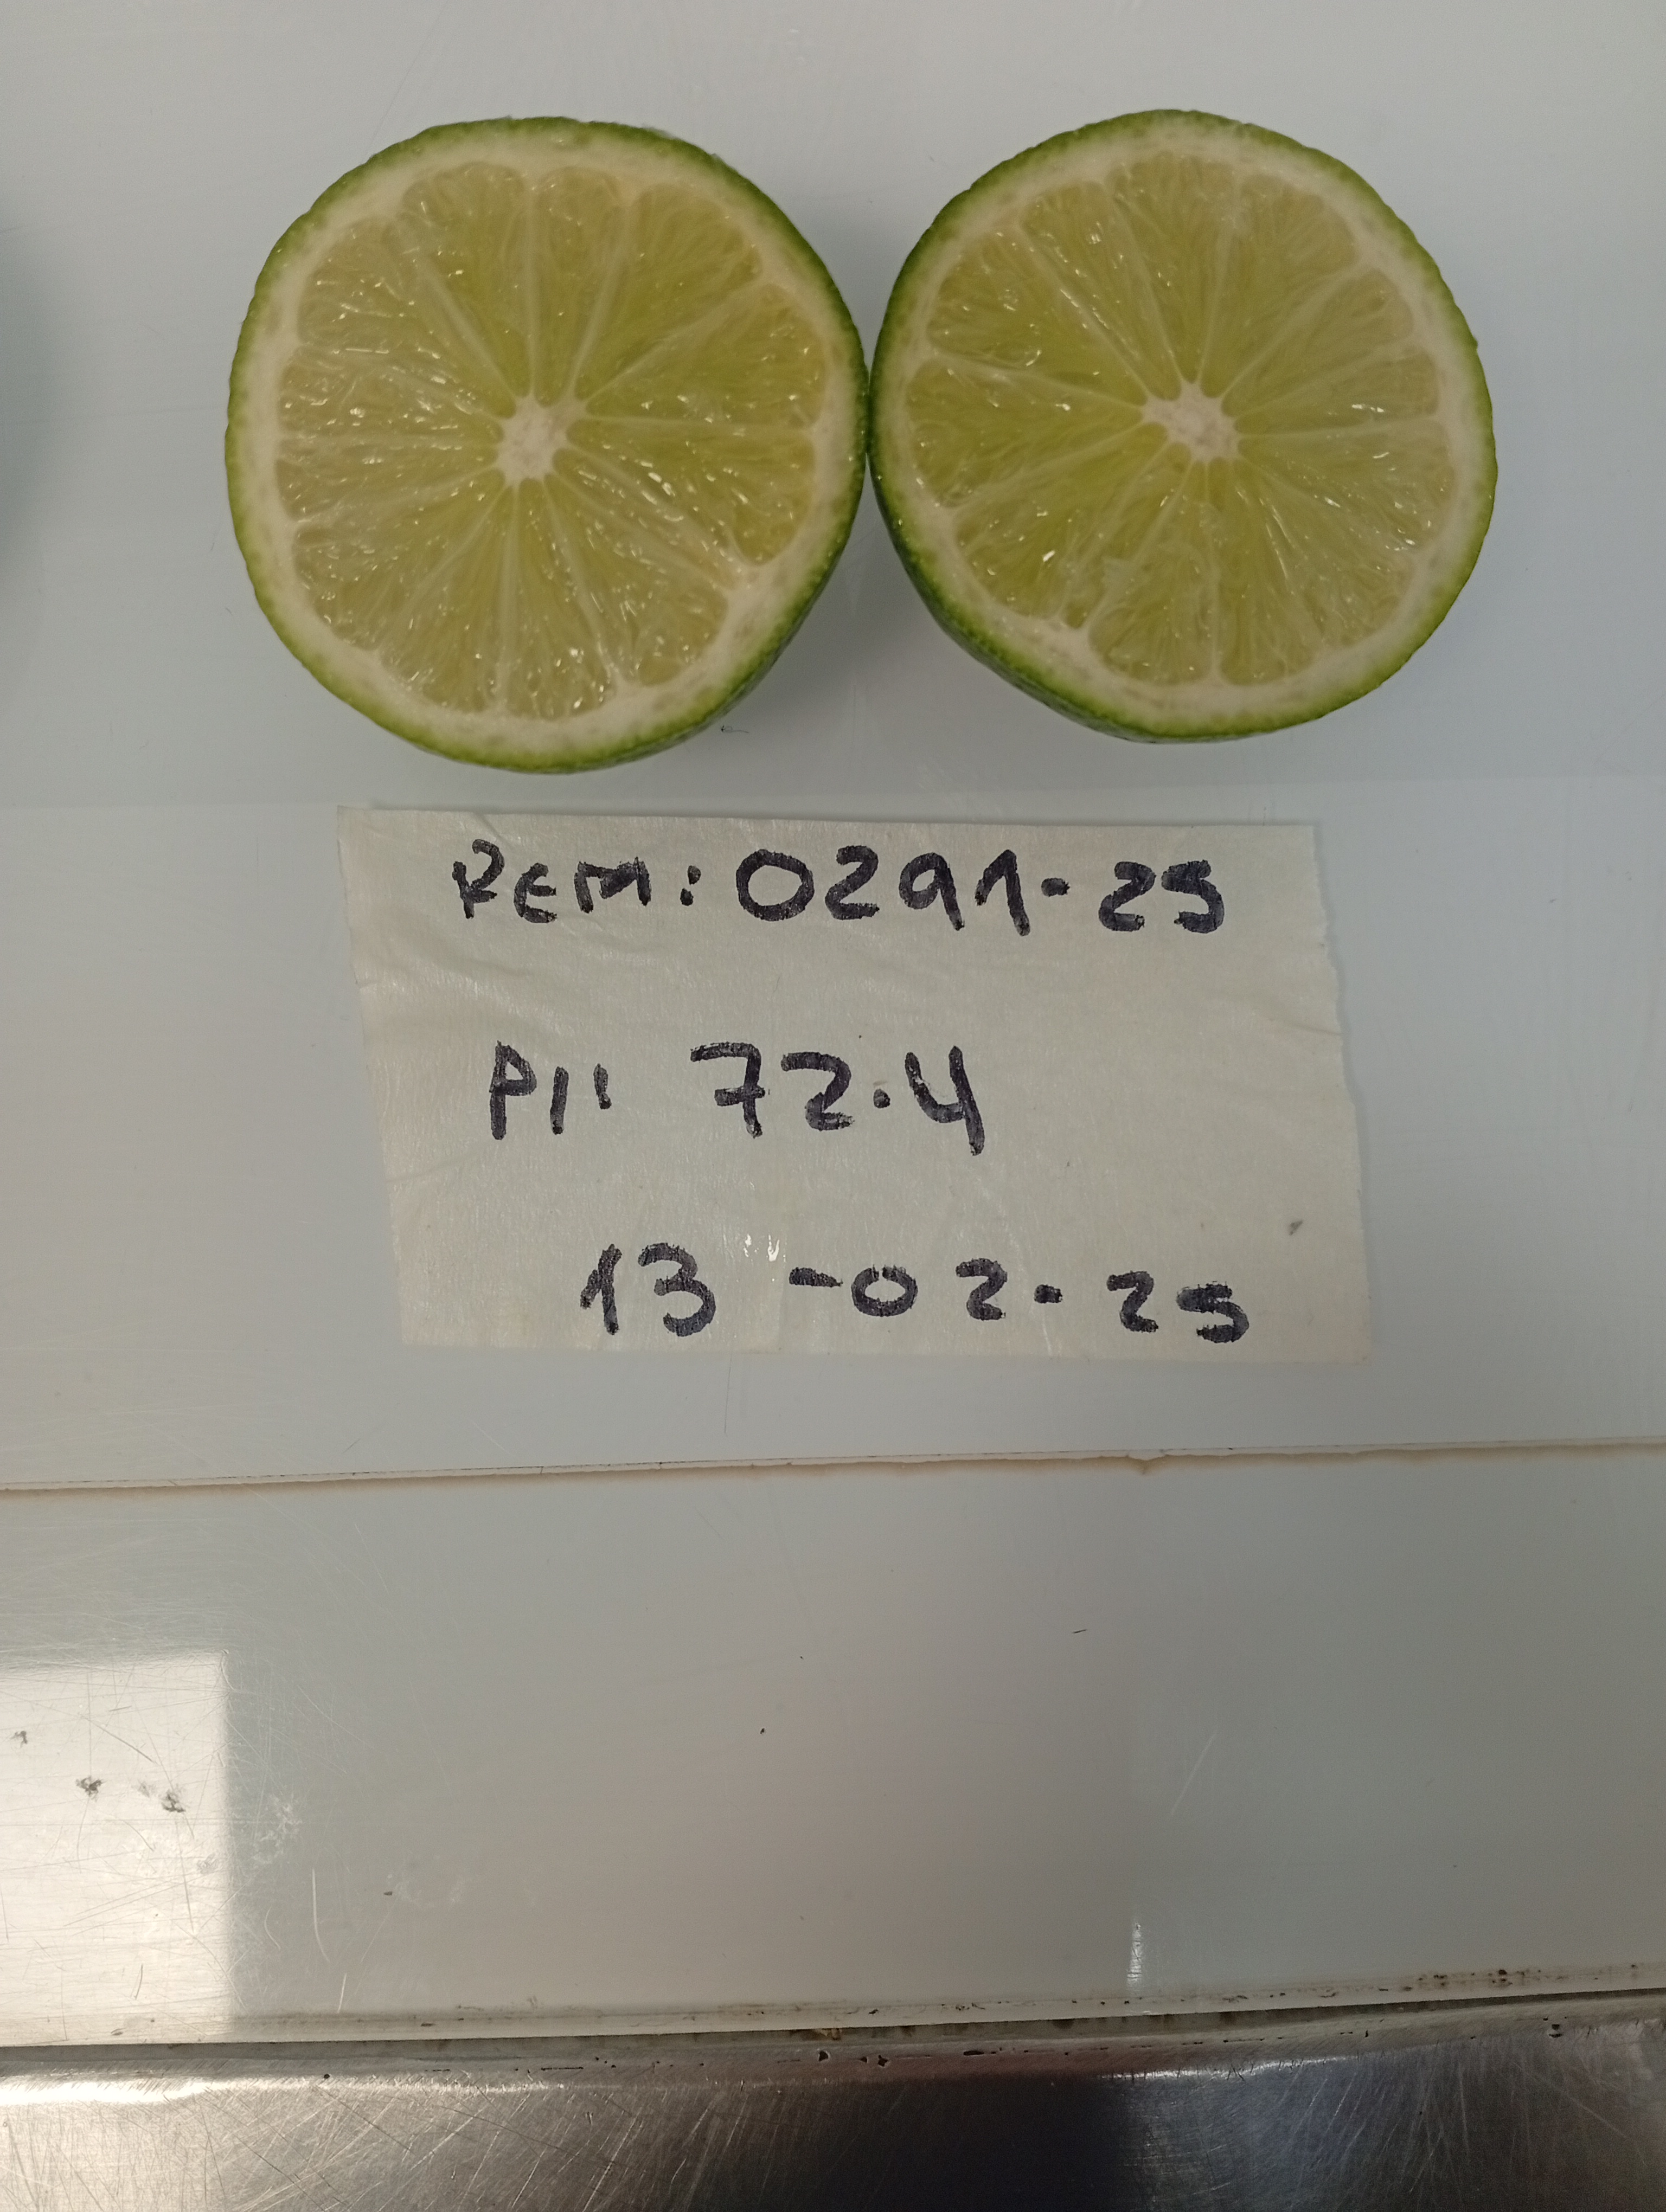 REM: 0291-25
P1: 72.4
13-02-25